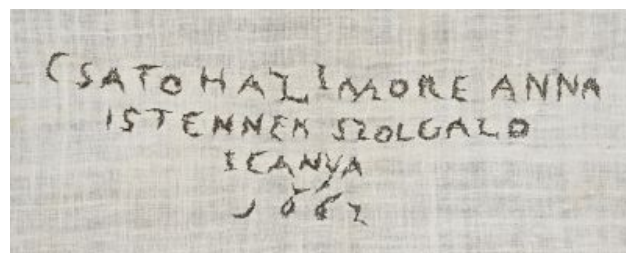 CSATO HAZI MORE ANNA
ISTENNEK SZOLGALO
LEANYA
1662